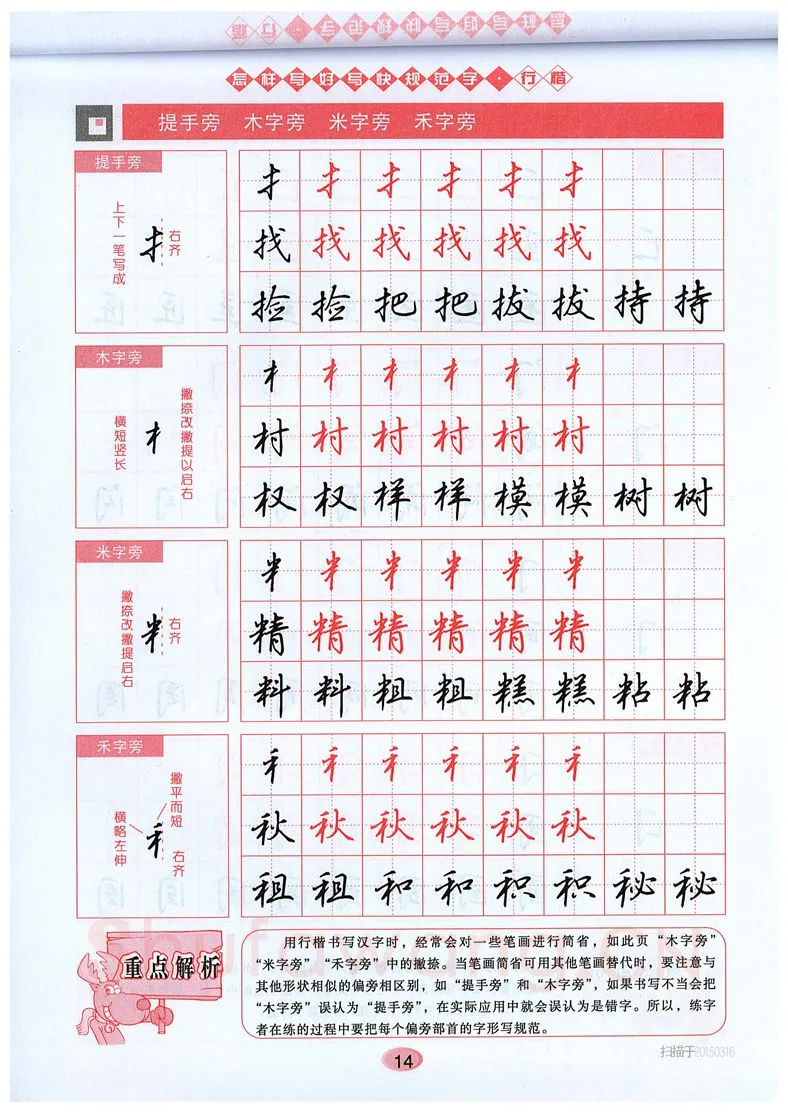 怎样写好写快规范字·行楷
提手旁 木字旁 米字旁 禾字旁
提手旁
上下一笔写成
右齐
扌 扌 扌 扌 扌 扌
找 找 找 找 找 找
捡 捡 把 把 拔 拔 持 持
木字旁
横短竖长
撇捺改撇提以启右
村 村 村 村 村 村
权 权 样 样 模 模 树 树
米字旁
撇捺改撇提启右
右齐
精 精 精 精 精 精
料 料 粗 粗 糕 糕 粘 粘
禾字旁
横略左伸
撇平而短
右齐
秋 秋 秋 秋 秋 秋
租 租 和 和 积 积 秘 秘
重点解析
用行楷书写汉字时，经常会对一些笔画进行简省，如此页“木字旁”
“米字旁”“禾字旁”中的撇捺。当笔画简省可用其他笔画替代时，要注意与
其他形状相似的偏旁相区别，如“提手旁”和“木字旁”，如果书写不当会把
“木字旁”误认为“提手旁”，在实际应用中就会误认为是错字。所以，练字
者在练的过程中要把每个偏旁部首的字形写规范。
14
扫描于20150316